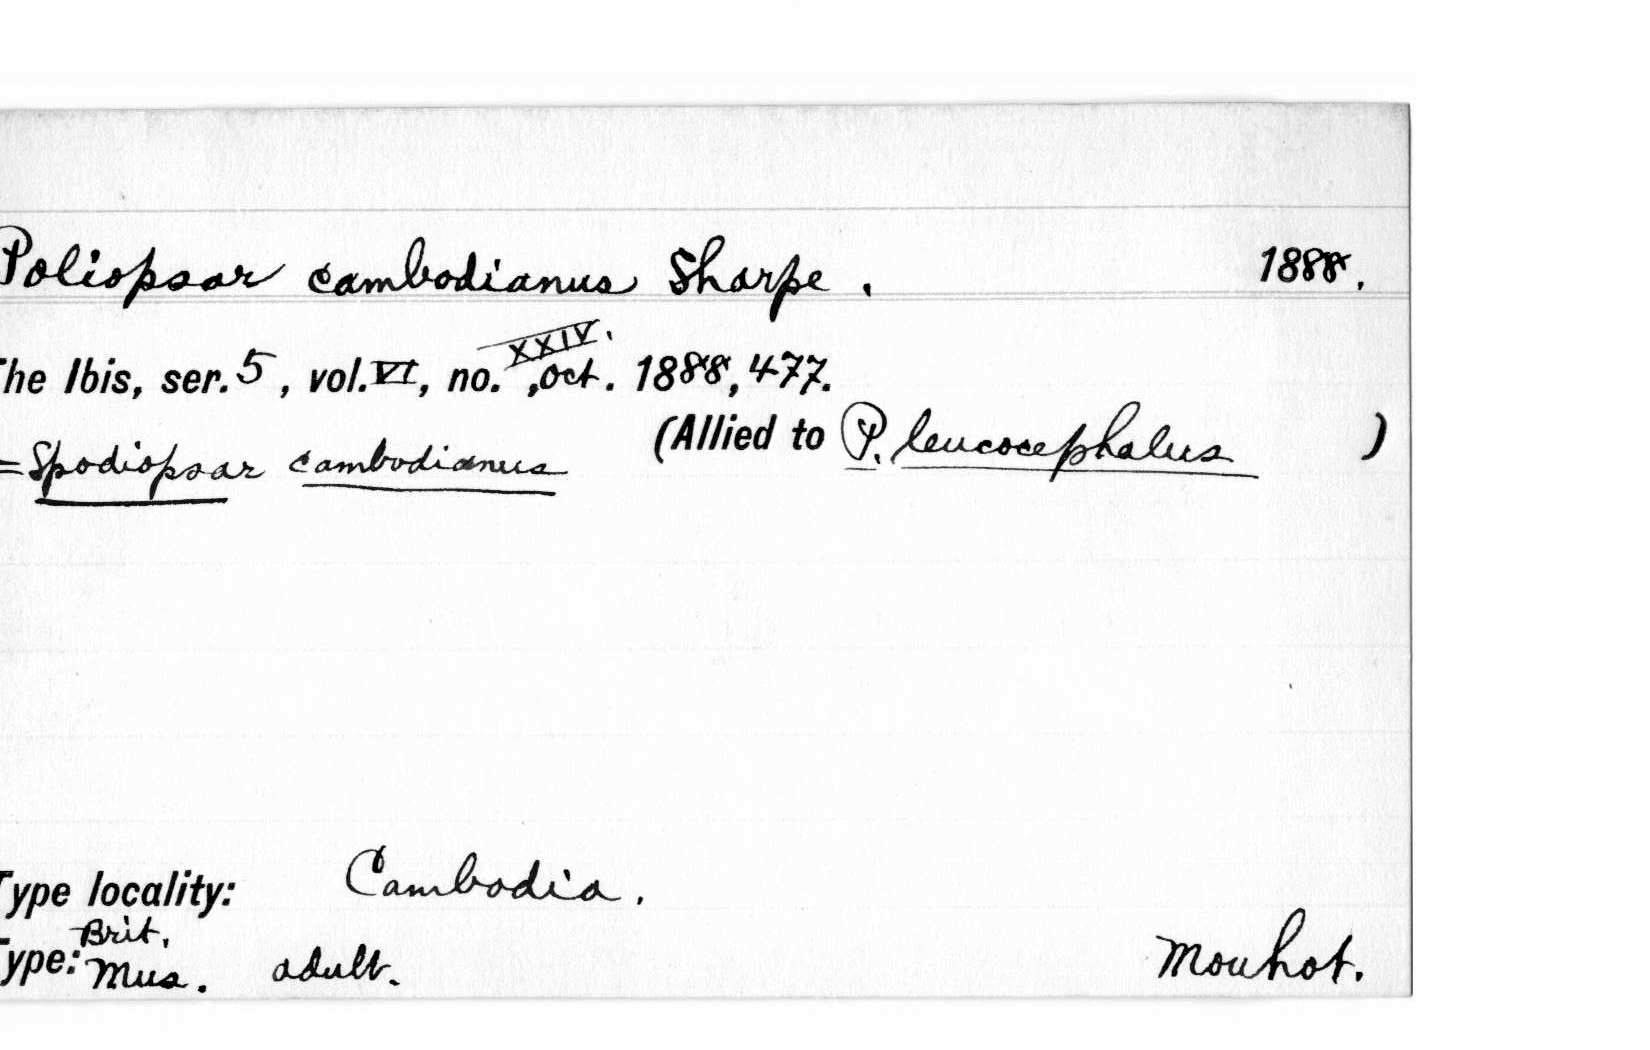 Poliopsar cambodianus Sharpe. 1888.
The Ibis, ser. 5, vol. VI, no. XXIV., oct. 1888, 477.
(Allied to P. leucocephalus )
= Spodiopsar cambodianus
Type locality: Cambodia.
Type: Brit. Mus. adult. Mouhot.